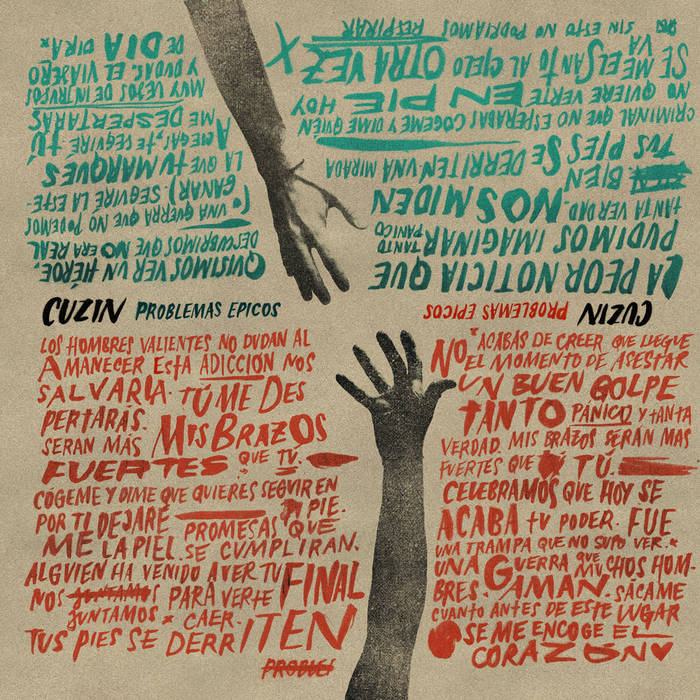 LA PEOR NOTICIA QUE
PUDIMOS IMAGINAR TANTO PANICO
TANTA VERDAD. NOS MIDEN
BIEN
TUS PIES SE DERRITEN UNA MIRADA
CRIMINAL QUE NO ESPERABAS COGEME Y DIME QUIEN
NO QUIERE VERTE EN PIE HOY
SE ME VA EL SANTO AL CIELO OTRA VEZ X
SIN ESTO NO PODRIAMOS RESPIRAR
QUISIMOS VER UN HÉROE,
DESCUBRIMOS QUE NO ERA REAL
(O UNA GUERRA QUE NO PODEMOS
GANAR). SEGUIRE LA ESTE-
LA QUE TU MARQUES
TE SEGUIRE TÚ
ME DESPERTARÁS
MUY LEJOS DE INTRUSOS
Y DUDAS. EL VIAJERO
DE DIA DIRA
CUZIN PROBLEMAS EPICOS
CUZIN PROBLEMAS EPICOS
LOS HOMBRES VALIENTES NO DUDAN AL
AMANECER ESTA ADICCIÓN NOS
SALVARIA. TÚ ME DES
PERTARÁS.
SERAN MÁS MIS BRAZOS
FUERTES QUE TU.
CÓGEME Y DIME QUE QUIERES SEGUIR EN
POR TI DEJARÉ PIE.
PROMESAS QUE
ME LA PIEL. SE CUMPLIRAN.
ALGUIEN HA VENIDO A VER TU FINAL
NOS JUNTAMOS PARA VERTE
JUNTAMOS CAER.
TUS PIES SE DERRITEN
PROBLE
NO ACABAS DE CREER QUE LLEGUE
EL MOMENTO DE ASESTAR
UN BUEN GOLPE
TANTO PÁNICO Y TANTA
VERDAD. MIS BRAZOS SERÁN MAS
FUERTES QUE TÚ.
CELEBRAMOS QUE HOY SE
ACABA TU PODER. FUE
UNA TRAMPA QUE NO SUPO VER.
UNA GUERRA QUE MUCHOS HOM-
BRES. GAMAN. SÁCAME
CUANTO ANTES DE ESTE LUGAR
SE ME ENCOGE EL
CORAZÓN